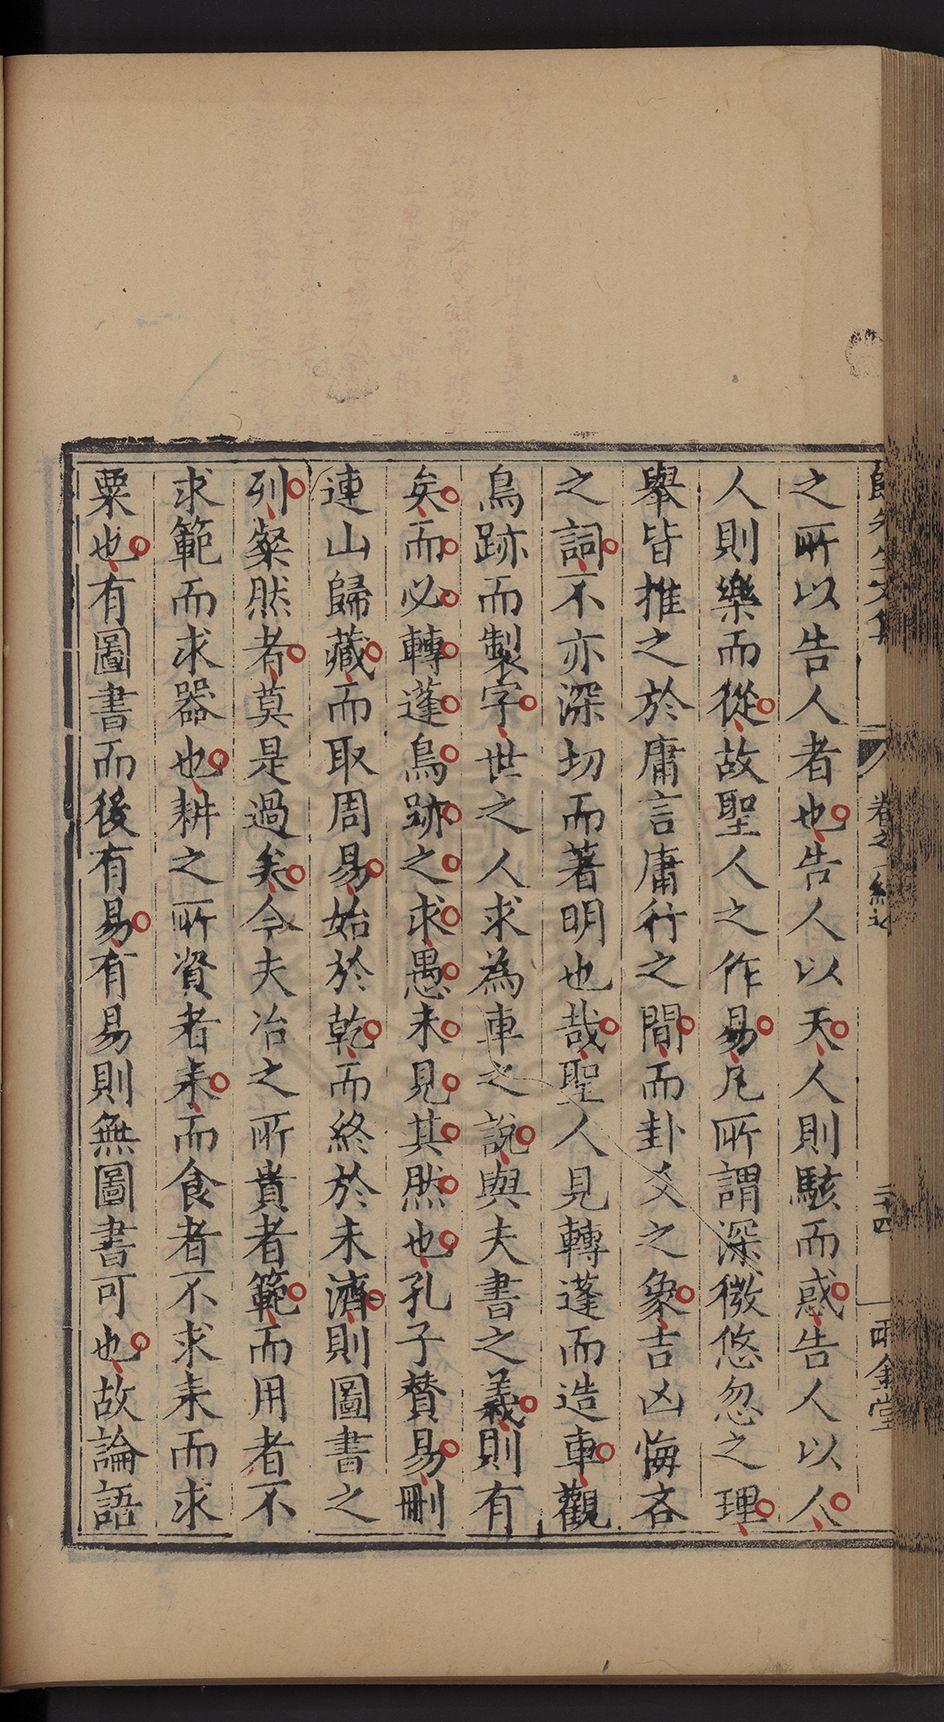 歸先生文集 卷之一 經 二十四 雨金堂
之所以告人者也告人以天人則駭而惑告人以人
人則樂而從故聖人之作易凡所謂深微悠忽之理
舉皆推之於庸言庸行之間而卦爻之象吉凶悔吝
之詞不亦深切而著明也哉聖人見轉蓬而造車觀
鳥跡而製字世之人求為車之說與夫書之義則有
矣而必轉蓬鳥跡之求愚未見其然也孔子贊易刪
連山歸藏而取周易始於乾而終於未濟則圖書之
列粲然者莫是過矣今夫冶之所貴者範而用者不
求範而求器也耕之所資者耒而食者不求耒而求
粟也有圖書而後有易有易則無圖書可也故論語